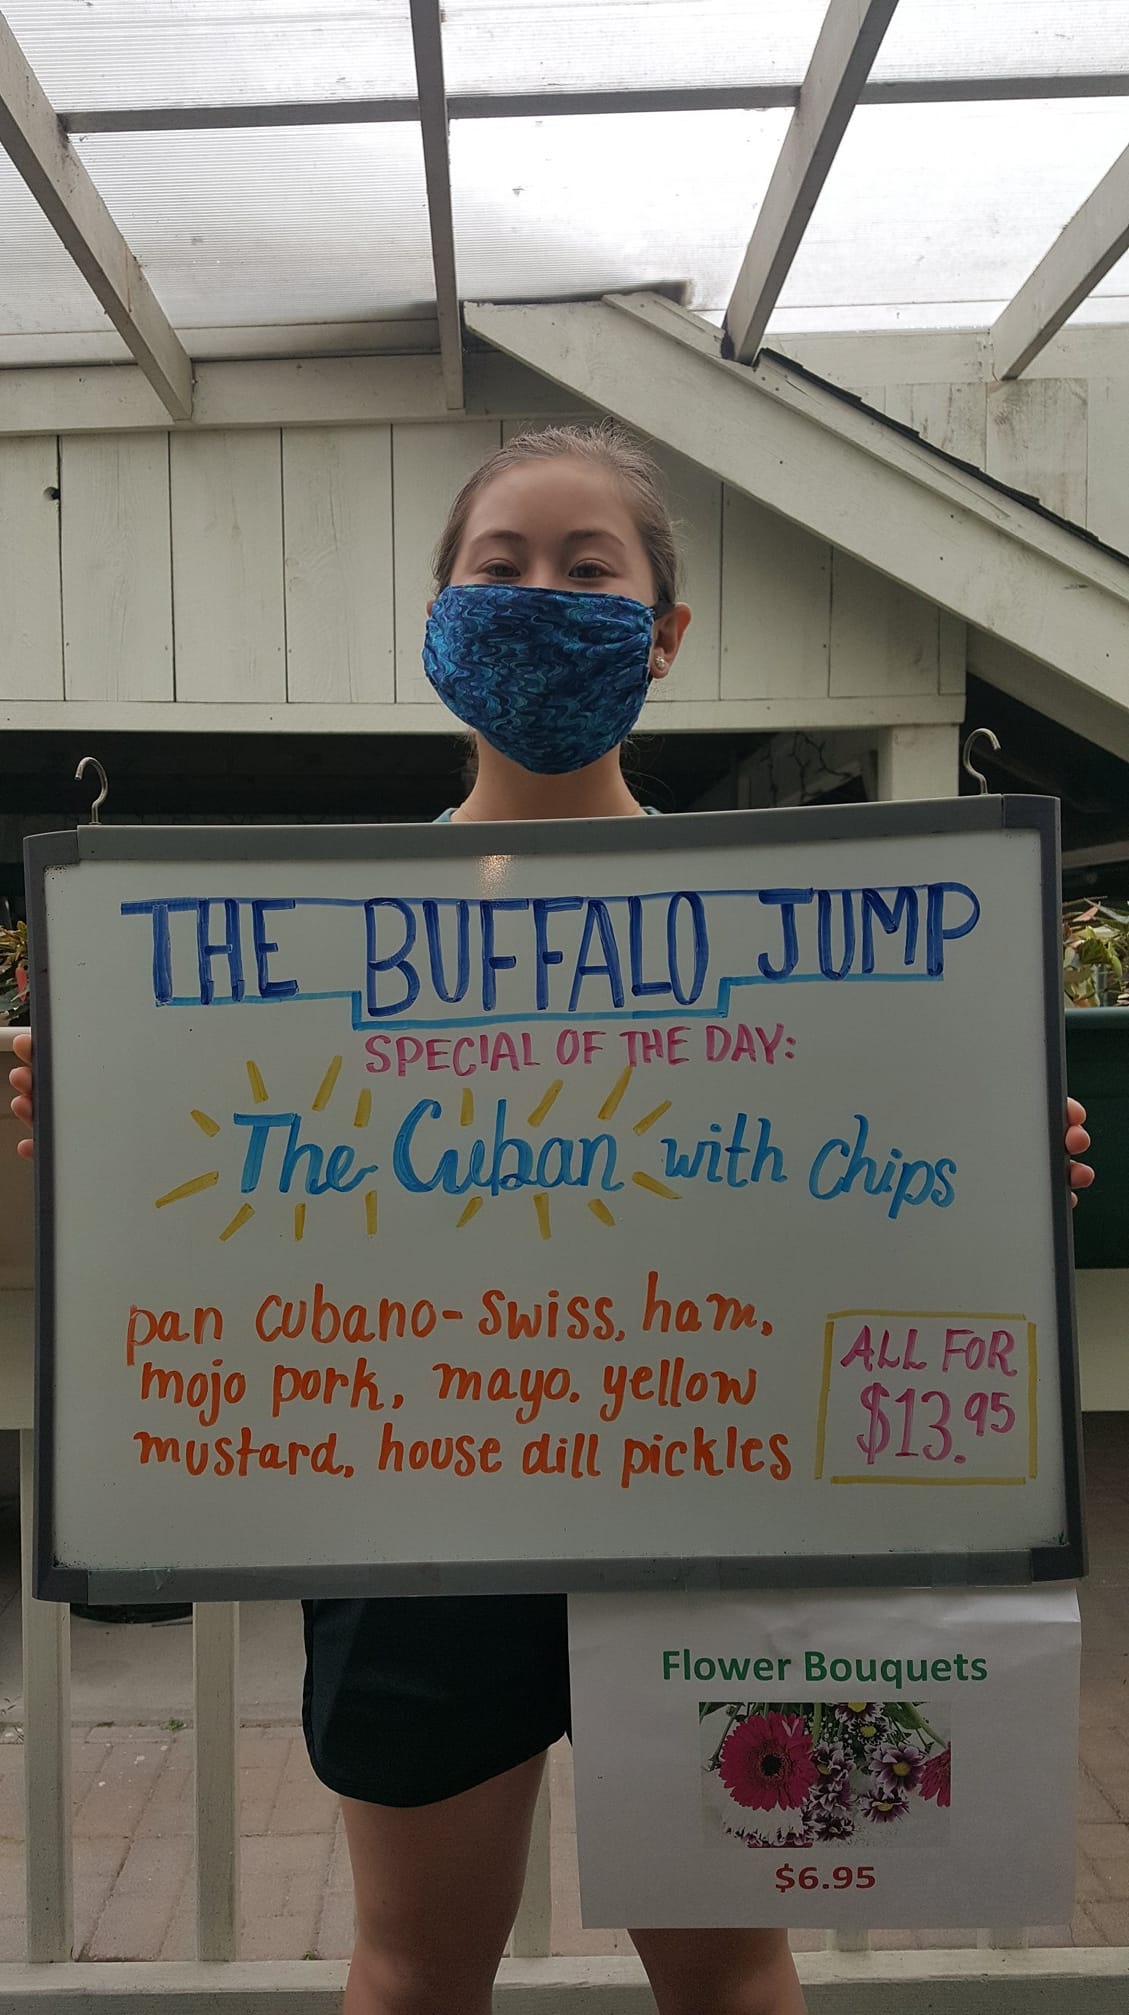 THE BUFFALO JUMP
SPECIAL OF THE DAY:
The Cuban with chips
pan cubano- swiss, ham,
mojo pork, mayo. yellow
mustard, house dill pickles
ALL FOR
$13.95
Flower Bouquets
$6.95